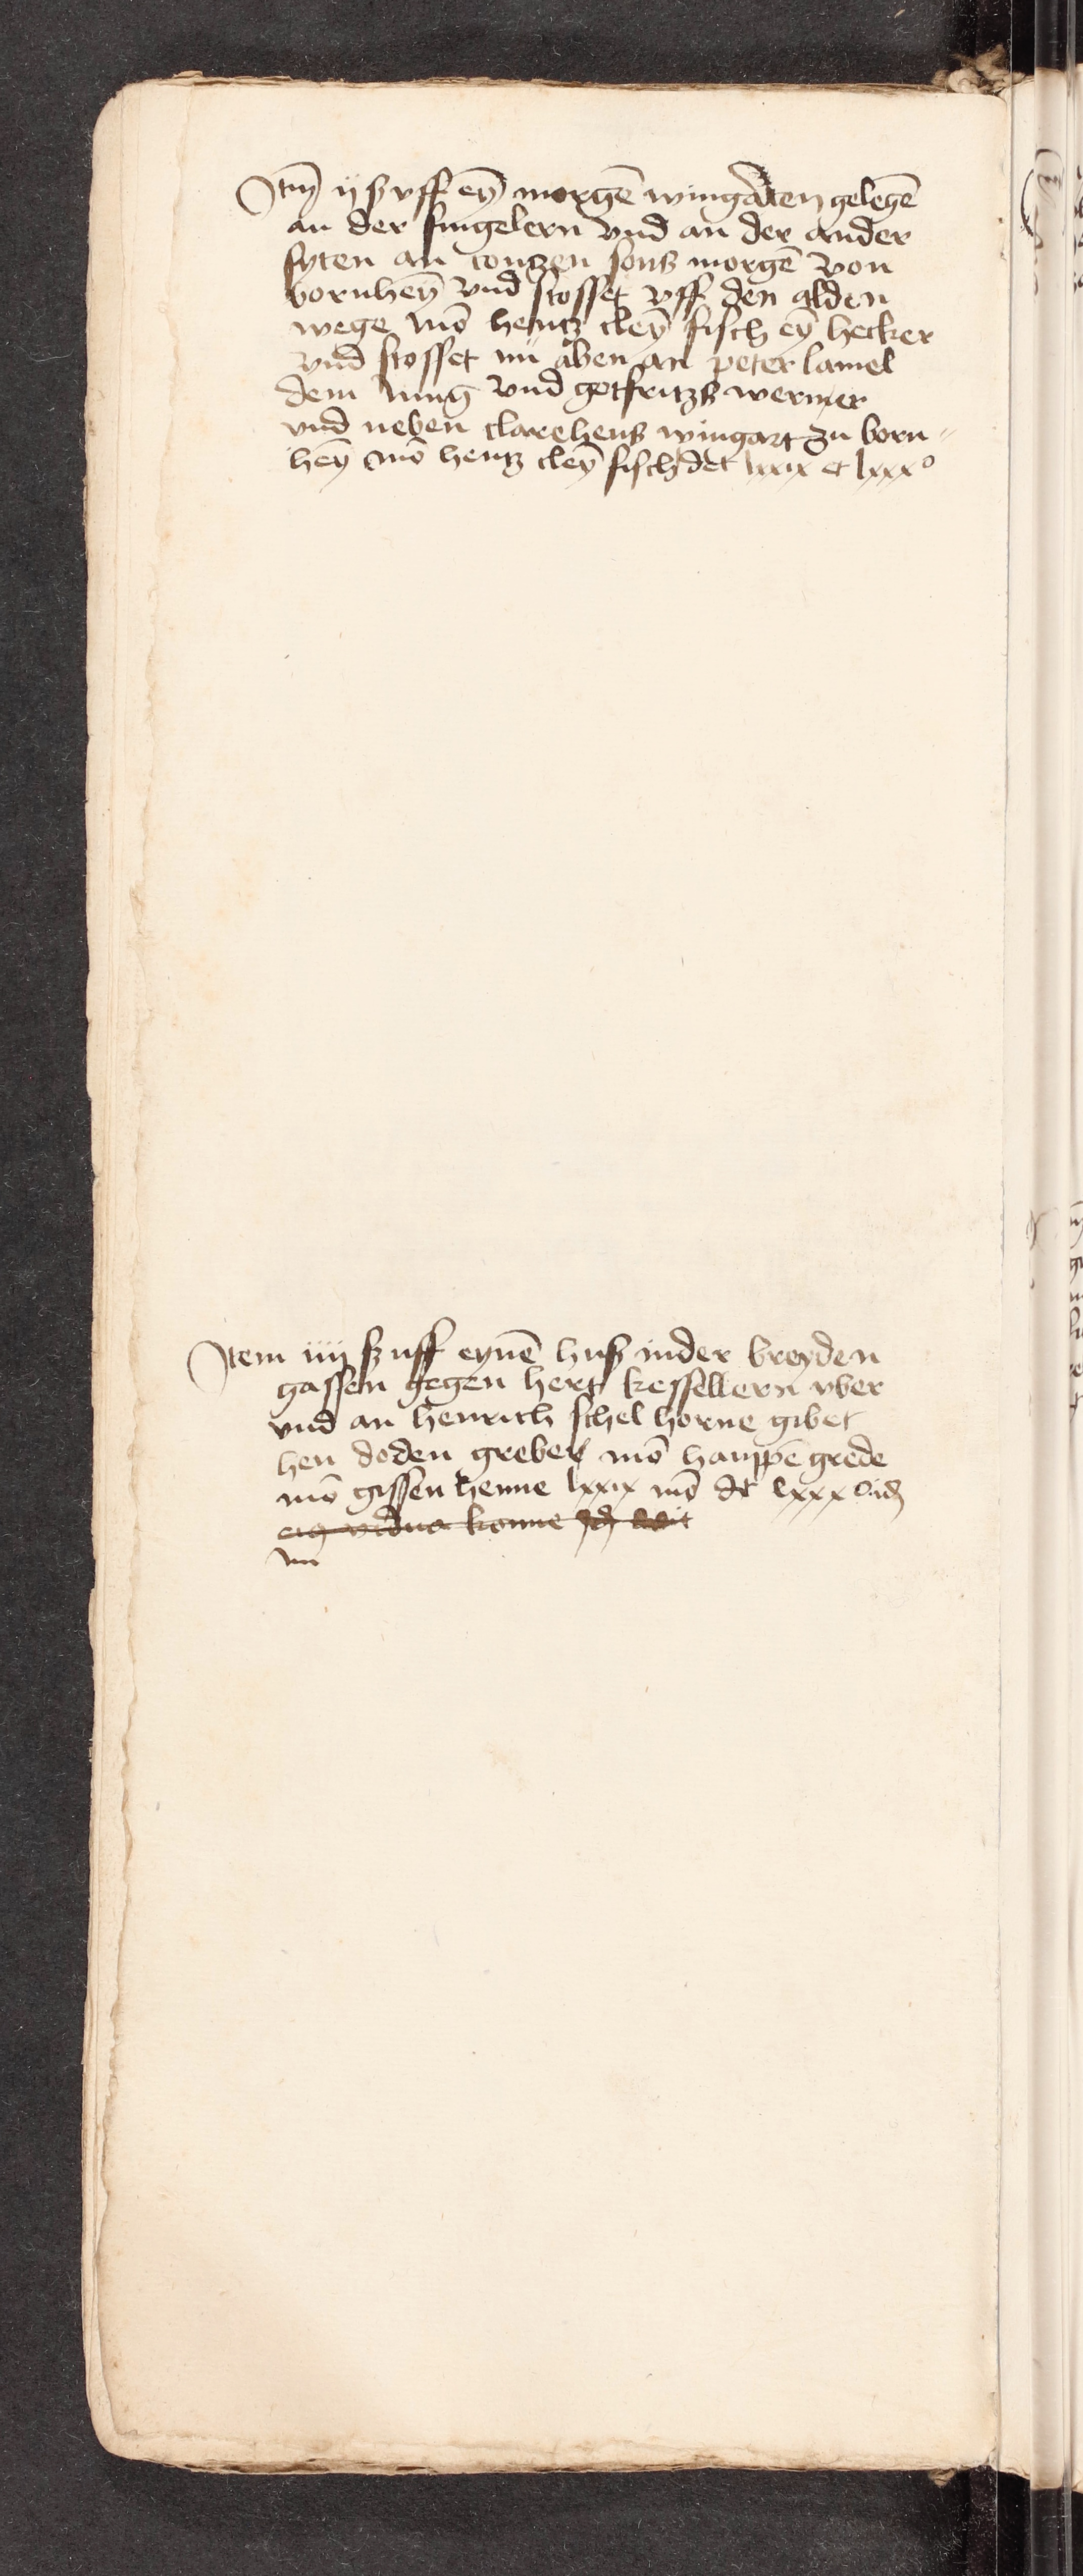 Itm̄ ij ß vff eyn̄ morgē wingarten gelegē
an der singelern vnd an der ander
syten an contzen sons morgē von
bornheȳ vnd stosset vff den alden
wege mō hentz cleȳ fisch eȳ hecker
vnd stosset nū aben an peter lamel
dem Jung vnd gotfritzß wermer
vnd neben clarehens wingart zu born"
heȳ mō hentz cleȳ fisch det lxxix et lxxxº
Item iiij ß uff eynē huß inder breyden
gassen gegen hert kessellern vber
vnd an henrich schel horne gibet
hen doden greber mō hampē grede
mō gissen henne lxxix mō dt lxxxº
vidua konne